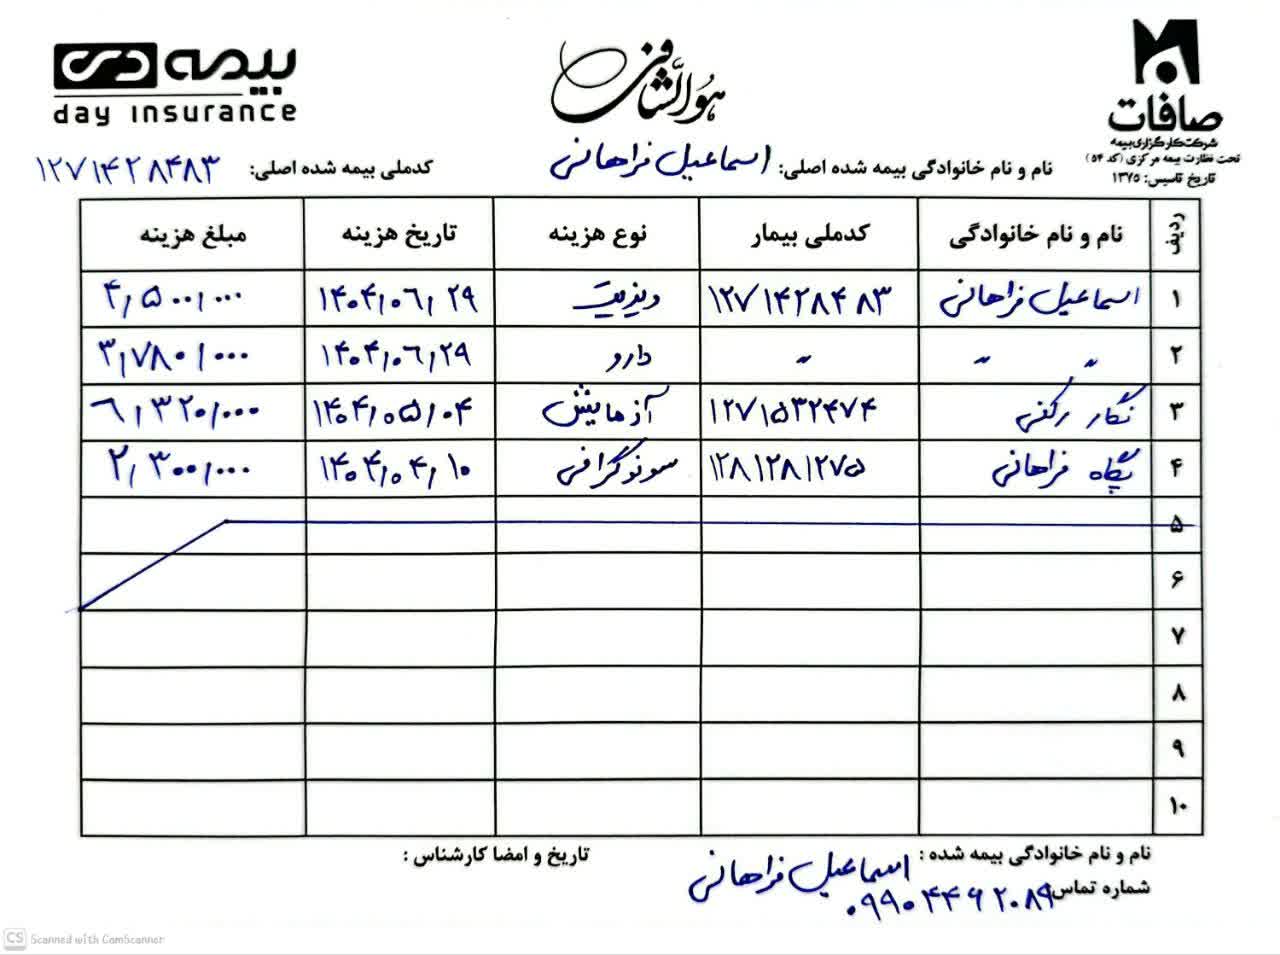 صافات
شرکت کارگزاری بیمه
تحت نظارت بیمه مرکزی (کد ۵۴)
تاریخ تاسیس: ۱۳۷۵
هوالشافی
بیمه دی
day insurance
نام و نام خانوادگی بیمه شده اصلی: اسماعیل فراهانی کدملی بیمه شده اصلی: ۱۲۷۱۴۲۸۴۸۳
ردیف نام و نام خانوادگی کدملی بیمار نوع هزینه تاریخ هزینه مبلغ هزینه
۱ اسماعیل فراهانی ۱۲۷۱۴۲۸۴۸۳ ویزیت ۱۴۰۴/۰۶/۲۹ ۴,۵۰۰,۰۰۰
۲ " " " دارو ۱۴۰۴/۰۶/۲۹ ۳,۷۸۰,۰۰۰
۳ نگار رکنی ۱۲۷۱۵۳۲۴۷۴ آزمایش ۱۴۰۴/۰۵/۰۴ ۶,۳۲۰,۰۰۰
۴ پگاه فراهانی ۱۲۸۱۲۸۱۲۷۵ سونوگرافی ۱۴۰۴/۰۴/۱۰ ۲,۳۰۰,۰۰۰
۵
۶
۷
۸
۹
۱۰
نام و نام خانوادگی بیمه شده : اسماعیل فراهانی تاریخ و امضا کارشناس :
شماره تماس ۰۹۹۰۴۴۶۲۰۸۹
CS Scanned with CamScanner